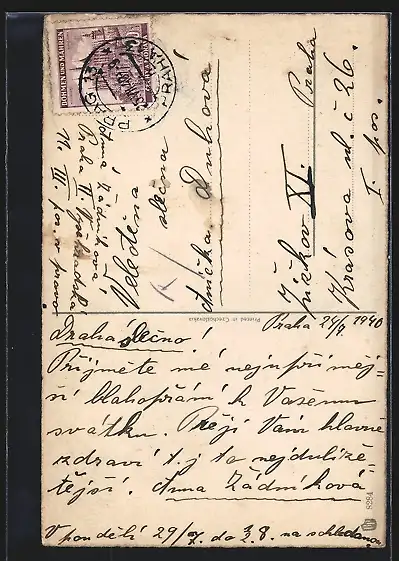 BÖHMEN UND MÄHREN
PRAG 13
PRAHA
Anna Žádníková
Praha
III. pos. v pravo
Velectěná
slečna
Anička Duhová
Žižkov XI. Praha
Krásova ul. č 26.
I. pos.
Printed in Czechoslovakia
Praha 24/7 1940
Drahá slečno!
Přijmete mé nejupřímněj-
ší blahopřání k Vašemu
svátku. Přeji Vám hlavně
zdraví t. j. to nejdůleže-
tější. Anna Žádníková
V pondělí 29/7. do 8. na schledanou
8284